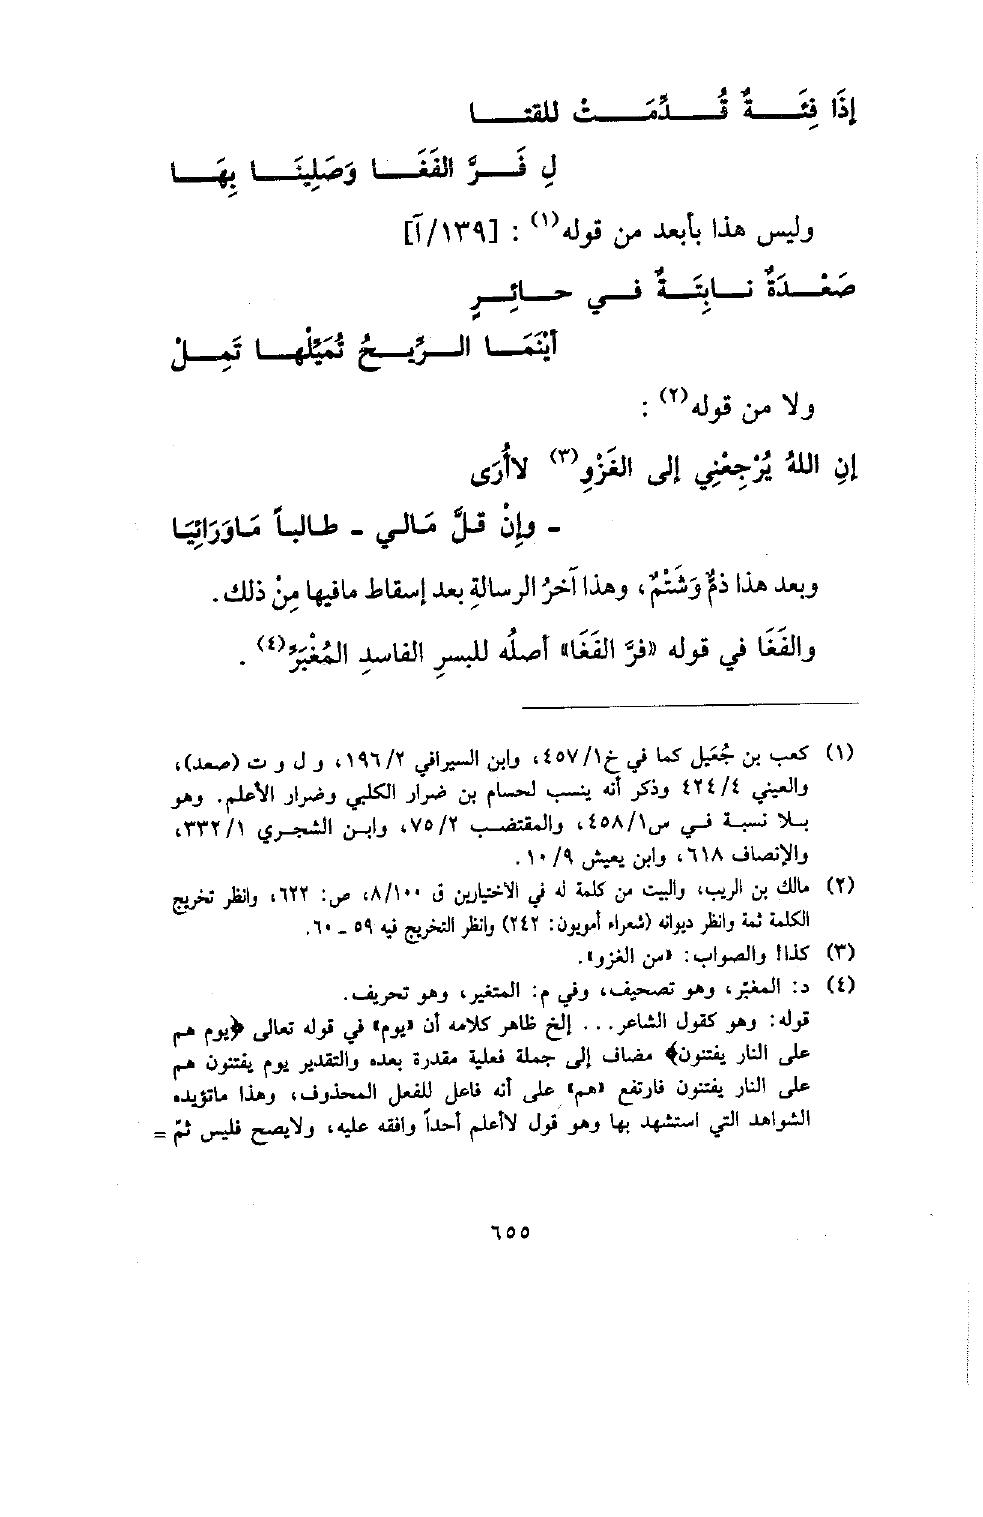 إذَا فِئَةٌ قُدِّمَتْ للقتا
لِ فَرَّ الفَغَا وَصَلِينَا بِهَا
وليس هذا بأبعد من قوله(١) : [١٣٩/آ]
صَعْدَةٌ نابِتَةٌ في حائِرٍ
أيْنَمَا الرِّيحُ تُمَيِّلْها تَمِلْ
ولا من قوله(٢) :
إنِ اللهُ يُرْجِعْنِي إلى الغَزْوِ(٣) لاأُرَى
- وإِنْ قلَّ مَالي - طالباً مَاوَرَائِيَا
وبعد هذا ذمٌّ وَشَتْمٌ، وهذا آخرُ الرسالةِ بعد إسقاط مافيها مِنْ ذلك.
والفَغَا في قوله «فرَّ الفَغَا» أصلُه للبسرِ الفاسدِ المُغْبَرِّ(٤) .
(١) كعب بن جُعَيل كما في خ٤٥٧/١، وابن السيرافي ١٩٦/٢، و ل و ت (صعد)،
والعيني ٤٢٤/٤ وذكر أنه ينسب لحسام بن ضرار الكلبي وضرار الأعلم. وهو
بلا نسبة في س٤٥٨/١، والمقتضب ٧٥/٢، وابن الشجري ٣٣٢/١،
والإنصاف ٦١٨، وابن يعيش ١٠/٩.
(٢) مالك بن الريب، والبيت من كلمة له في الاختيارين ق ٨/١٠٠، ص: ٦٢٢، وانظر تخريج
الكلمة ثمة وانظر ديوانه (شعراء أمويون: ٢٤٢) وانظر التخريج فيه ٥٩ - ٦٠.
(٣) كذا! والصواب: «من الغزو».
(٤) د: المغبّر، وهو تصحيف، وفي م: المتغير، وهو تحريف.
قوله: وهو كقول الشاعر... إلخ ظاهر كلامه أن «يوم» في قوله تعالى ﴿يوم هم
على النار يفتنون﴾ مضاف إلى جملة فعلية مقدرة بعده والتقدير يوم يفتنون هم
على النار يفتنون فارتفع «هم» على أنه فاعل للفعل المحذوف، وهذا ماتؤيده
الشواهد التي استشهد بها وهو قول لاأعلم أحداً وافقه عليه، ولايصح فليس ثمّ =
٦٥٥